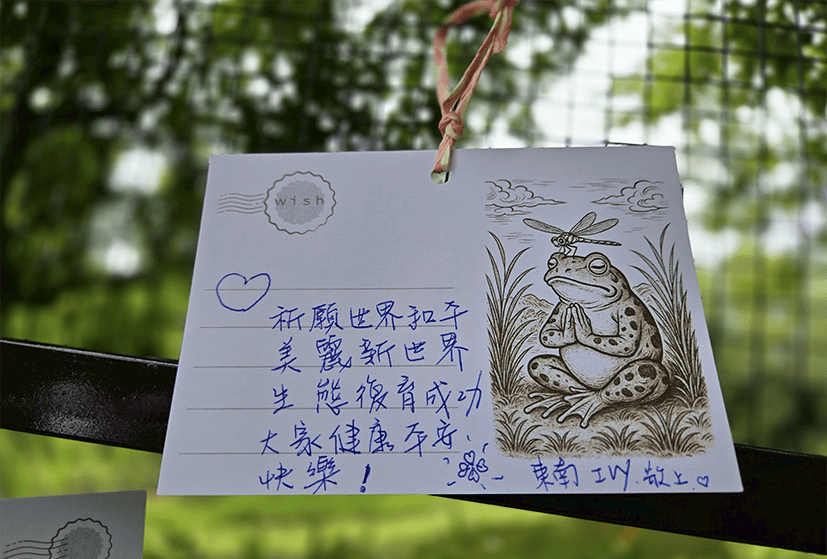 wish
祈願世界和平
美麗新世界
生態復育成功
大家健康平安.
快樂！
東南 IVY. 敬上.